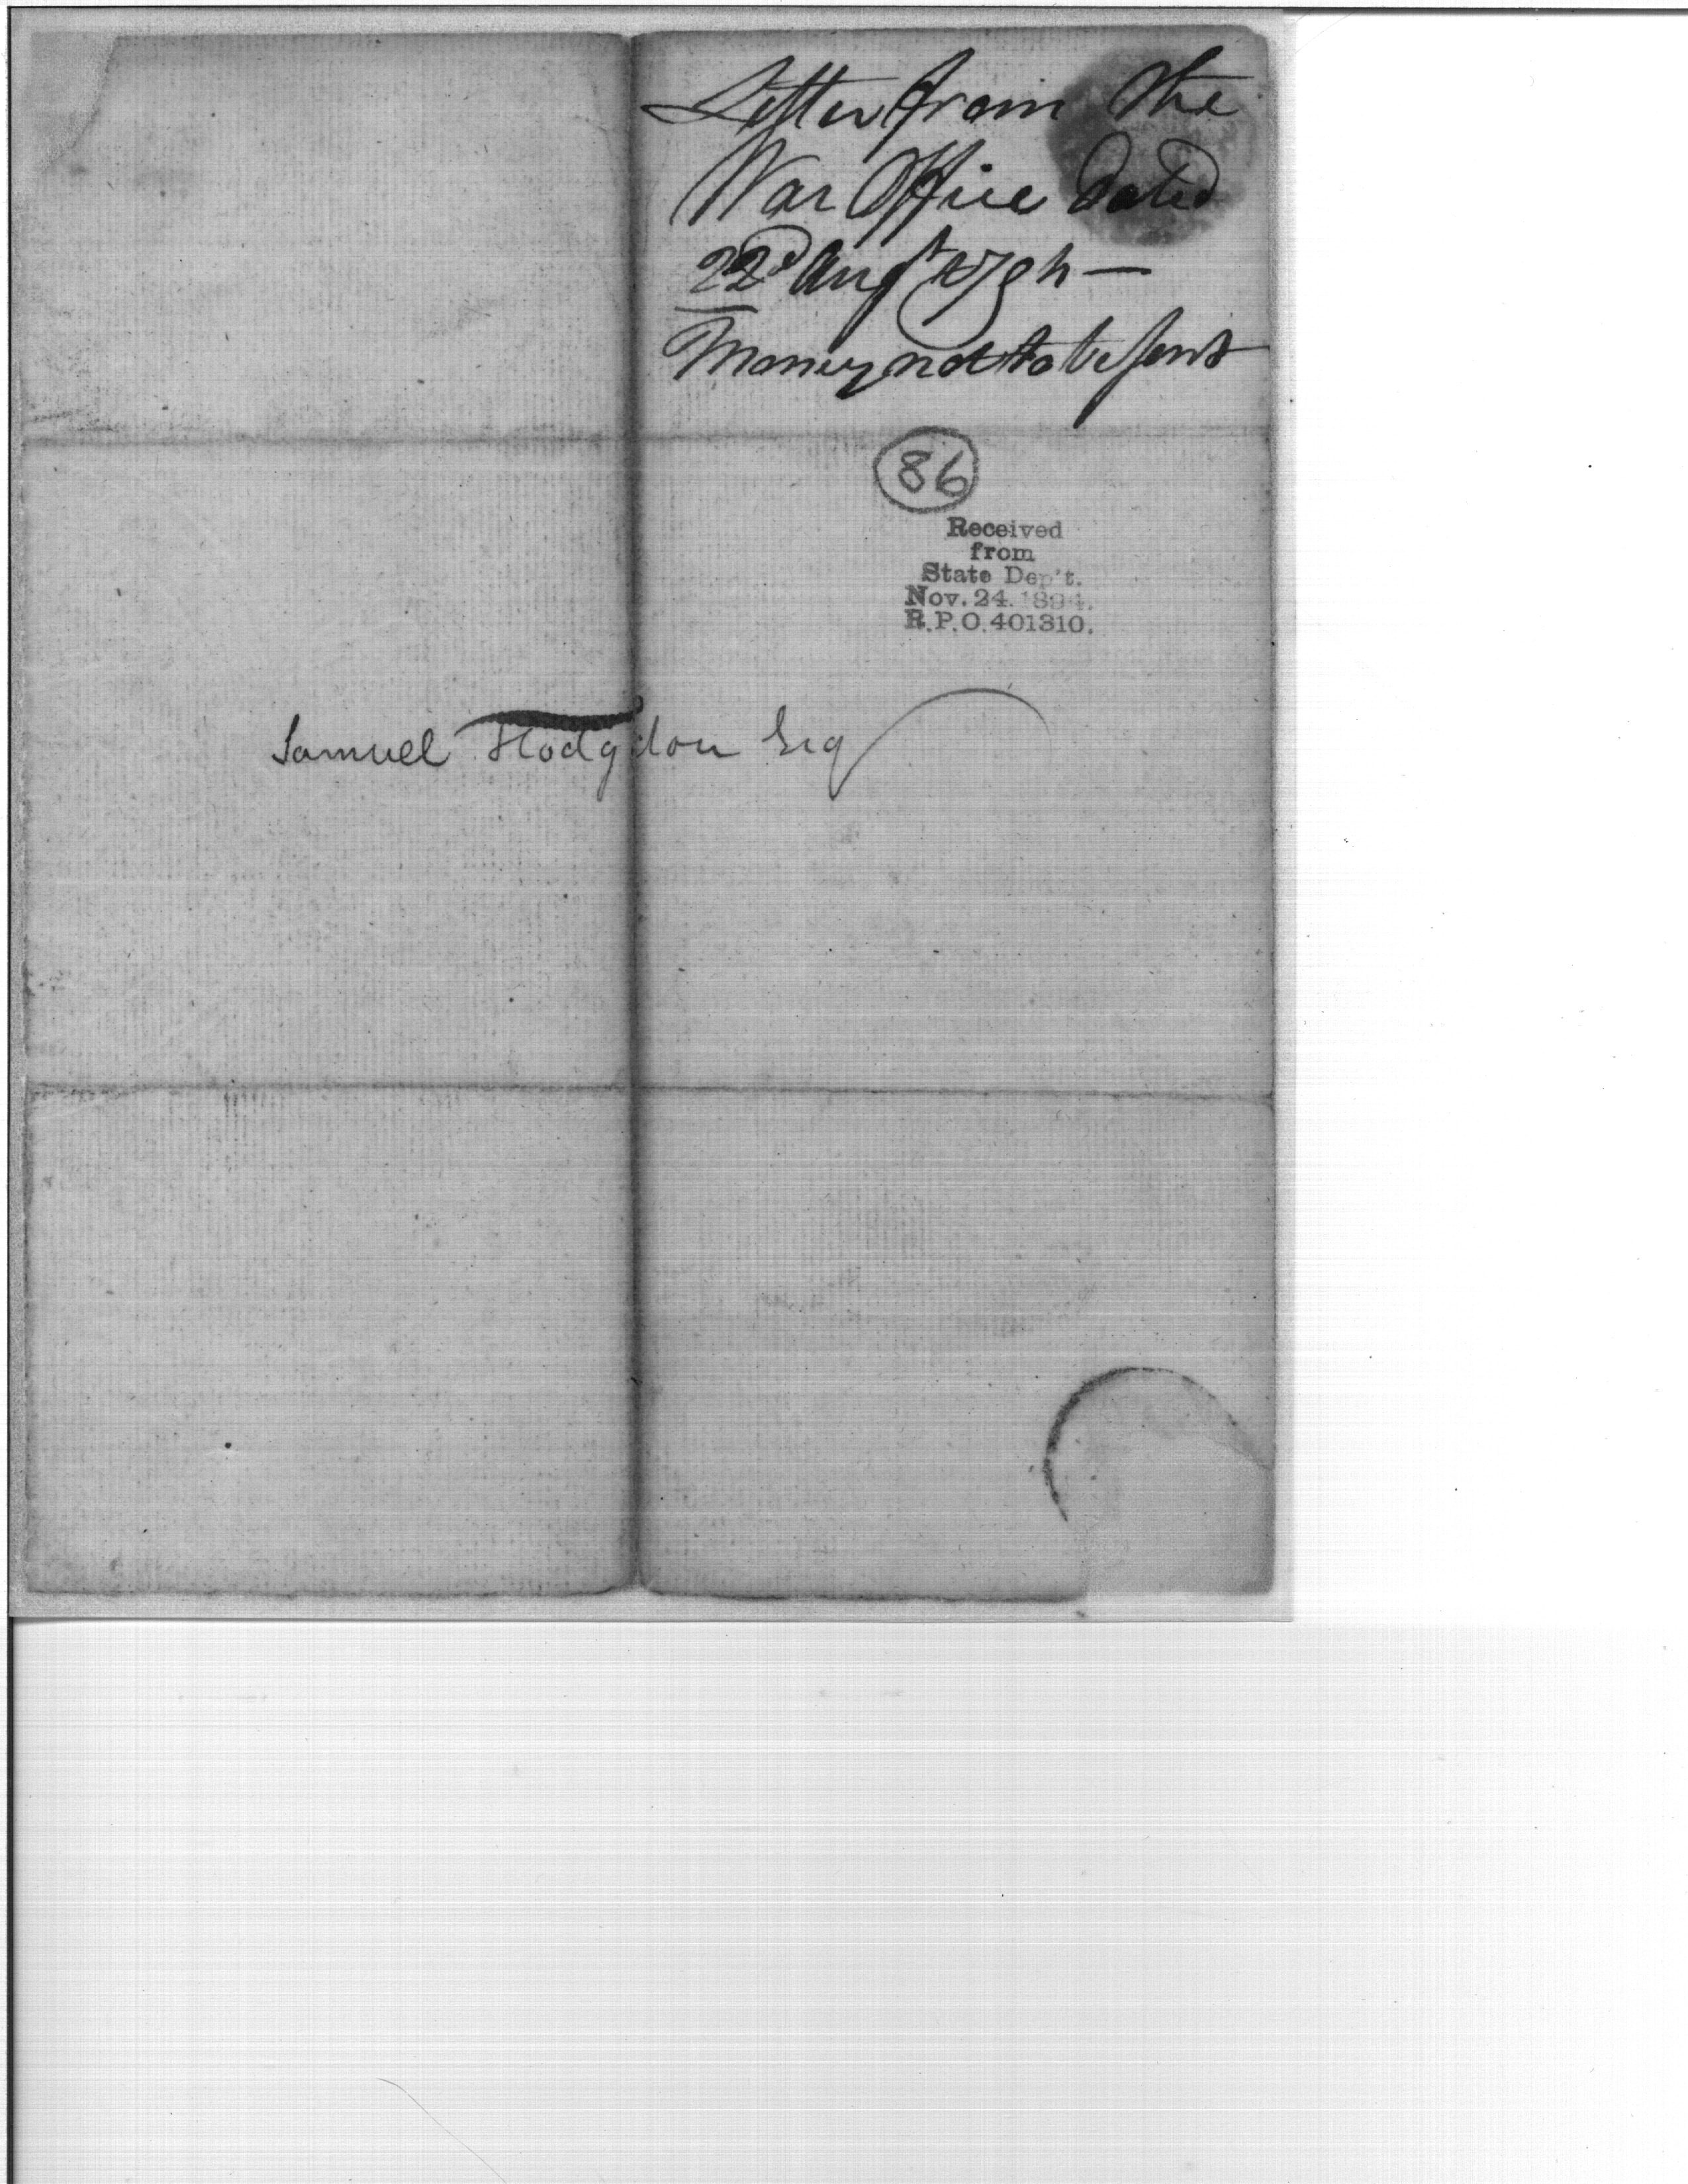 Letter from the
War Office dated
22d Augt 1794 —
Money not to be sent
86
Received
from
State Dep't.
Nov. 24. 1894.
R.P.O. 401310.
Samuel Hodgdon Esq